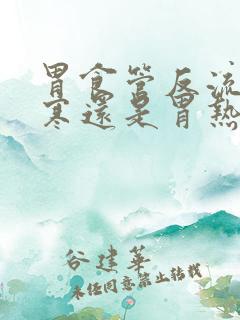 胃食管反流
寒還是胃熱
谷建華
未经同意禁止转载